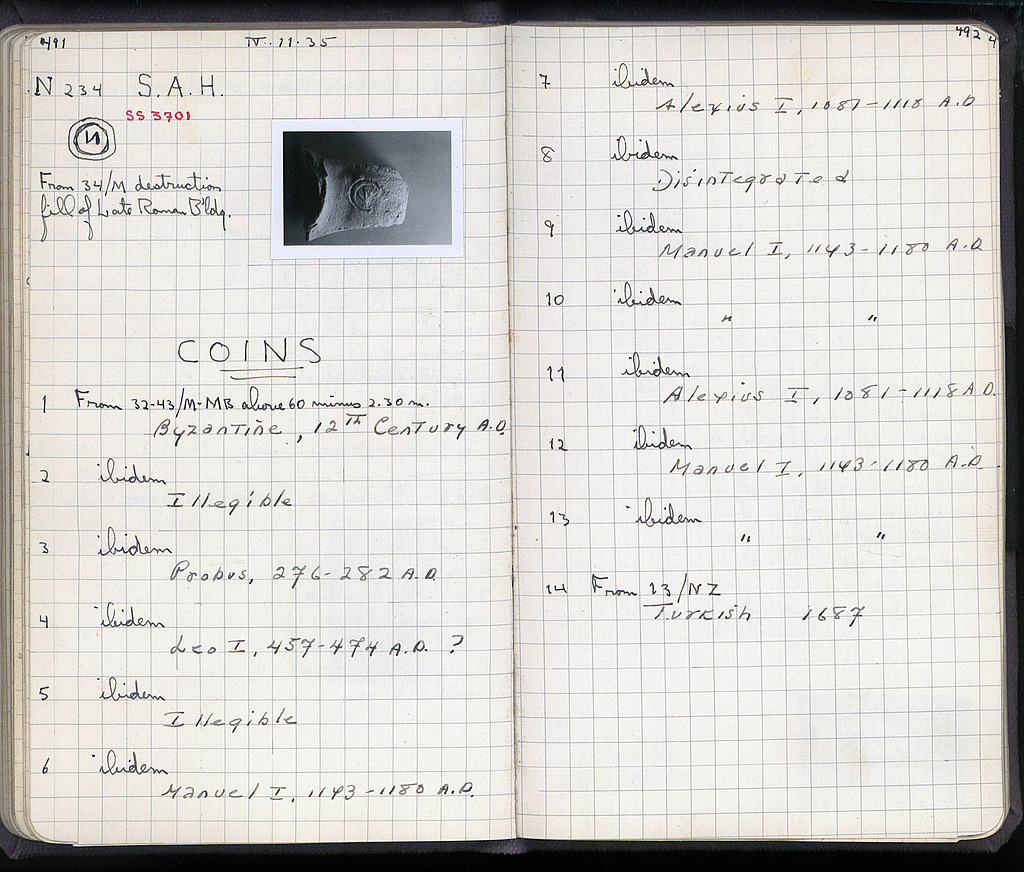 491
IV.11.35
N 234 S.A.H.
SS 3701
N
From 34/M destruction
fill of Late Roman B'ldg.
COINS
1 From 32-43/M-MB above 60 minus 2.30 m.
Byzantine, 12TH Century A.D.
2 ibidem
Illegible
3 ibidem
Probus, 276-282 A.D.
4 ibidem
Leo I, 457-474 A.D. ?
5 ibidem
Illegible
6 ibidem
Manuel I, 1143-1180 A.D.
492
7 ibidem
Alexius I, 1081-1118 A.D
8 ibidem
Disintegrated
9 ibidem
Manuel I, 1143-1180 A.D
10 ibidem
" "
11 ibidem
Alexius I, 1081-1118 A.D.
12 ibidem
Manuel I, 1143-1180 A.D.
13 ibidem
" "
14 From 13/NZ
Turkish 1687